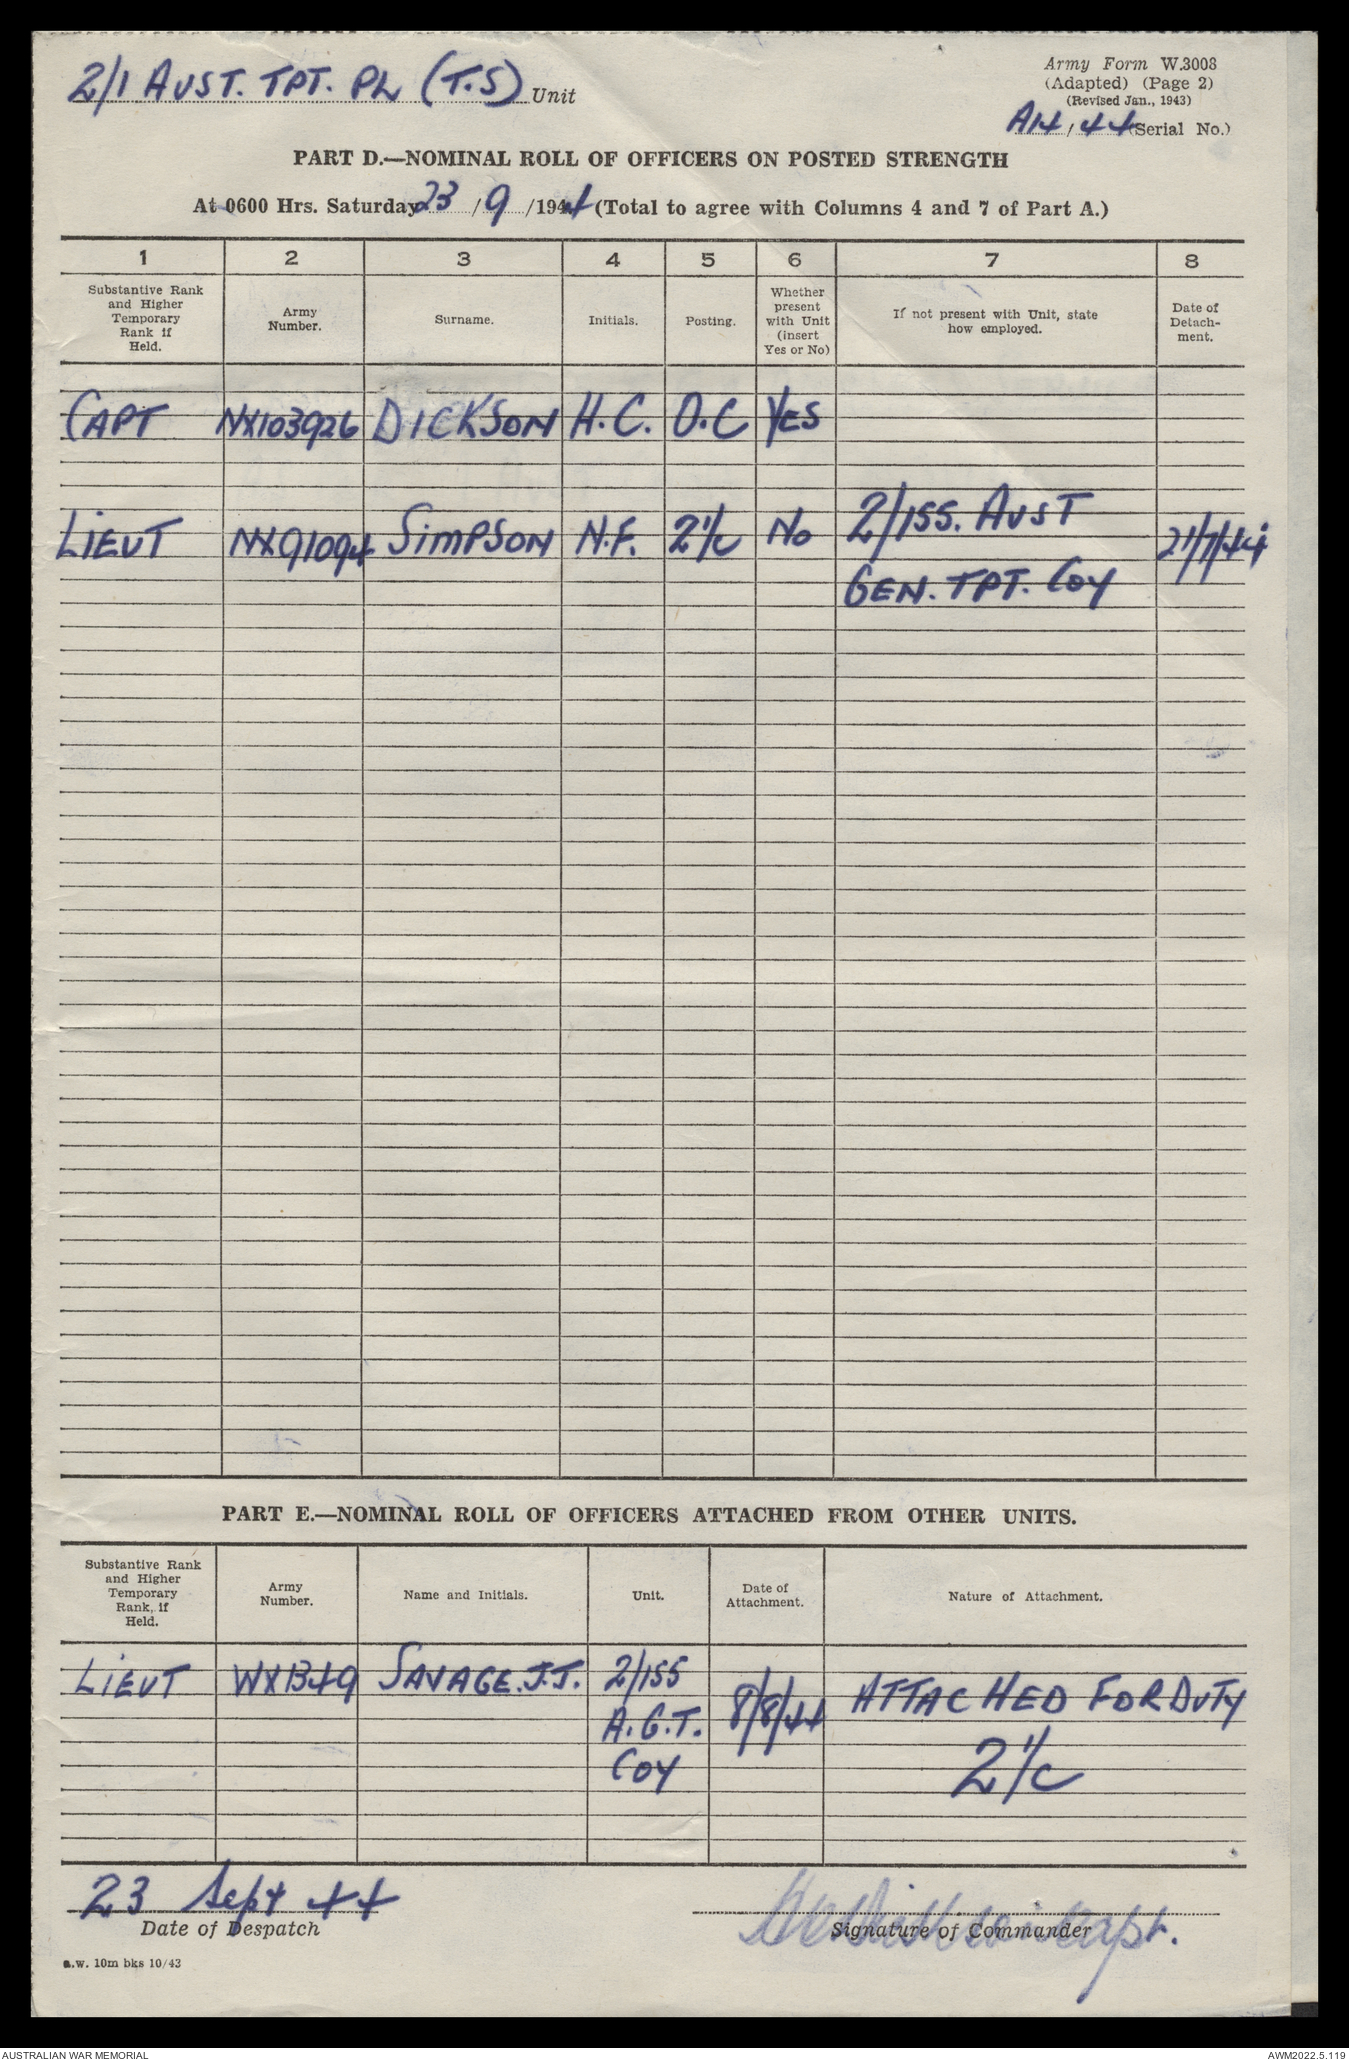 2/1 AUST. TPT. PL (T.S) Unit
Army Form W.3008
(Adapted) (Page 2)
(Revised Jan., 1943)
A14/44 (Serial No.)
PART D.—NOMINAL ROLL OF OFFICERS ON POSTED STRENGTH
At 0600 Hrs. Saturday 23/9/1944 (Total to agree with Columns 4 and 7 of Part A.)
1 2 3 4 5 6 7 8
Substantive Rank
and Higher
Temporary
Rank if
Held.
Army
Number.
Surname.
Initials.
Posting.
Whether
present
with Unit
(insert
Yes or No)
If not present with Unit, state
how employed.
Date of
Detach-
ment.
CAPT NX103926 DICKSON H.C. O.C YES
LIEUT NX91094 SIMPSON N.F. 2 1/C NO 2/155. AUST 21/7/44
GEN. TPT. COY
PART E.—NOMINAL ROLL OF OFFICERS ATTACHED FROM OTHER UNITS.
Substantive Rank
and Higher
Temporary
Rank, if
Held.
Army
Number.
Name and Initials.
Unit.
Date of
Attachment.
Nature of Attachment.
LIEUT WX1349 SAVAGE. J.J. 2/155 8/8/44 ATTACHED FOR DUTY
A.G.T. 2 1/C
COY
23 Sept 44
Date of Despatch
Capt.
Signature of Commander
a.w. 10m bks 10/43
AUSTRALIAN WAR MEMORIAL
AWM2022.5.119